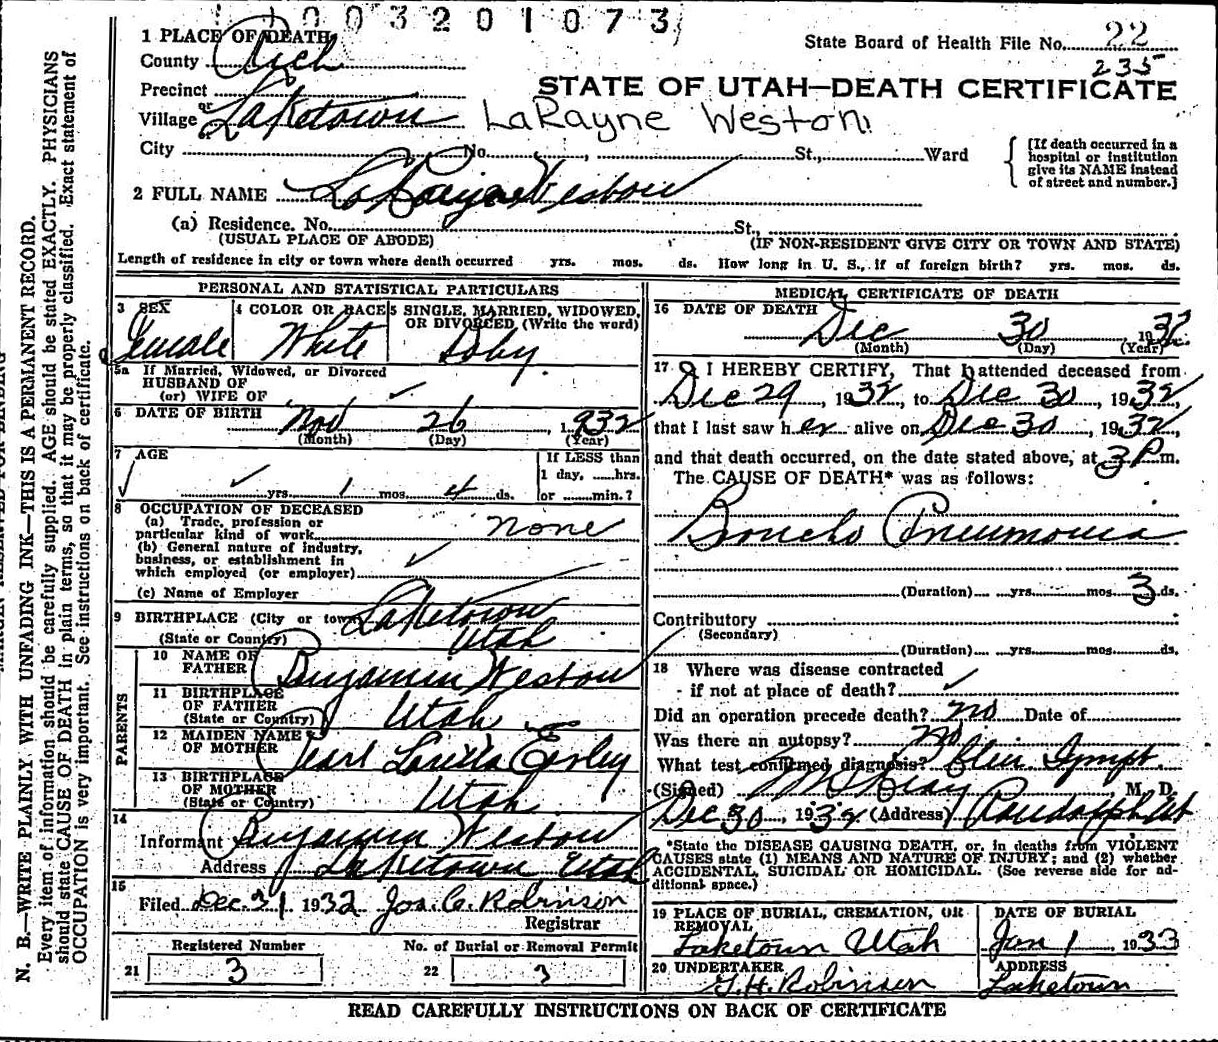 003201073
1 PLACE OF DEATH
State Board of Health File No. 22
235
County Rich
STATE OF UTAH—DEATH CERTIFICATE
Precinct
or
Village Laketown
LaRayne Weston
or
City No. St., Ward
[If death occurred in a
hospital or institution
give its NAME instead
of street and number.]
2 FULL NAME LaRayne Weston
(a) Residence. No. St.,
(USUAL PLACE OF ABODE) (IF NON-RESIDENT GIVE CITY OR TOWN AND STATE)
Length of residence in city or town where death occurred yrs. mos. ds. How long in U. S., if of foreign birth? yrs. mos. ds.
PERSONAL AND STATISTICAL PARTICULARS
3 SEX 4 COLOR OR RACE 5 SINGLE, MARRIED, WIDOWED,
OR DIVORCED (Write the word)
Female White Baby
5a If Married, Widowed, or Divorced
HUSBAND OF
(or) WIFE OF
6 DATE OF BIRTH Nov 26, 1932
(Month) (Day) (Year)
7 AGE
If LESS than
1 day, hrs.
yrs. 1 mos. 4 ds. or min.?
8 OCCUPATION OF DECEASED
(a) Trade, profession or
particular kind of work none
(b) General nature of industry,
business, or establishment in
which employed (or employer)
(c) Name of Employer
9 BIRTHPLACE (City or town) Laketown
(State or Country) Utah
PARENTS
10 NAME OF
FATHER Benjamin Weston
11 BIRTHPLACE
OF FATHER
(State or Country) Utah
12 MAIDEN NAME
OF MOTHER Pearl
13 BIRTHPLACE
OF MOTHER
(State or Country) Utah
14
Informant Benjamin Weston
Address Laketown Utah
15
Filed Dec. 31 1932 Jos. C. Robinson
Registrar
Registered Number No. of Burial or Removal Permit
21 3 22 3
MEDICAL CERTIFICATE OF DEATH
16 DATE OF DEATH
Dec 30 1932
(Month) (Day) (Year)
17 I HEREBY CERTIFY, That I attended deceased from
Dec 29, 1932, to Dec 30, 1932,
that I last saw her alive on Dec 30, 1932,
and that death occurred, on the date stated above, at 3 P.m.
The CAUSE OF DEATH* was as follows:
Broncho Pneumonia
(Duration) yrs. mos. 3 ds.
Contributory
(Secondary)
(Duration) yrs. mos. ds.
18 Where was disease contracted
if not at place of death?
Did an operation precede death? no Date of
Was there an autopsy? no
What test confirmed diagnosis?
(Signed) M. D.
Dec 30, 1932 (Address) Randolph Ut
*State the DISEASE CAUSING DEATH, or, in deaths from VIOLENT
CAUSES state (1) MEANS AND NATURE OF INJURY; and (2) whether
ACCIDENTAL, SUICIDAL OR HOMICIDAL. (See reverse side for ad-
ditional space.)
19 PLACE OF BURIAL, CREMATION, OR
REMOVAL
Laketown Utah
DATE OF BURIAL
Jan 1, 1933
20 UNDERTAKER
G. H. Robinson
ADDRESS
Laketown
READ CAREFULLY INSTRUCTIONS ON BACK OF CERTIFICATE
N. B.—WRITE PLAINLY WITH UNFADING INK—THIS IS A PERMANENT RECORD.
Every item of information should be carefully supplied. AGE should be stated EXACTLY. PHYSICIANS
should state CAUSE OF DEATH in plain terms, so that it may be properly classified. Exact statement of
OCCUPATION is very important. See instructions on back of certificate.